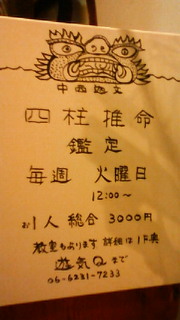 四柱推命
鑑定
毎週 火曜日
12:00〜
お1人 総合 3000円
教室もあります 詳細は1F奥
遊気Qまで
06-6231-7233